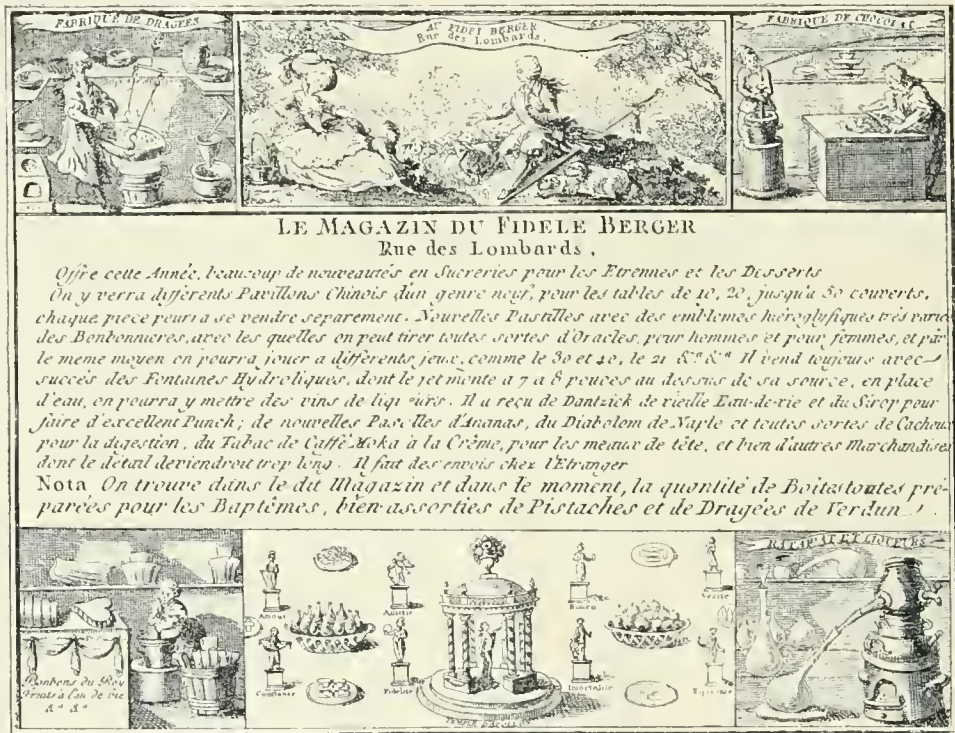 FABRIQUE DE DRAGÉES
AU FIDEL BERGER
Rue des Lombards.
FABRIQUE DE CHOCOLAT
LE MAGAZIN DU FIDELE BERGER
Rue des Lombards,
Offre cette Année, beaucoup de nouveautés en Sucreries pour les Etrennes et les Desserts
On y verra differents Pavillons Chinois d'un genre neuf, pour les tables de 10, 20, jusqu'a 50 couverts,
chaque piece poura se vendre separement. Nouvelles Pastilles avec des emblemes hieroglyfiques très varié
des Bonbonnieres, avec les quelles on peut tirer toutes sortes d'Oracles, pour hommes et pour femmes, et par
le meme moyen on pourra jouer a differents jeux, comme le 30 et 40, le 21 &.a &.a Il vend toujours avec
succés des Fontaines Hydroliques, dont le jet monte a 7 a 8 pouces au dessus de sa source, en place
d'eau, on pourra y mettre des vins de liqueurs. Il a reçu de Dantzick de vieille Eau-de-vie et du Sirop pour
faire d'excellent Punch; de nouvelles Pastilles d'Ananas, du Diabolom de Naple et toutes sortes de Cachoux
pour la digestion, du Tabac de Caffé Moka à la Crême, pour les meaux de tête, et bien d'autres Marchandises
dont le détail deviendroit trop long. Il fait des envois chez l'Etranger
Nota On trouve dans le dit Magazin et dans le moment, la quantité de Boites toutes pré-
parées pour les Baptêmes, bien assorties de Pistaches et de Dragées de Verdun.
Bonbons du Roy
Fruits à l'au de vie
&.a &.a
Amour
Amitié
Constance
Fidelité
TEMPLE D'APOLLON
Immortalité
Verité
RATAFIAT ET LIQUEURS